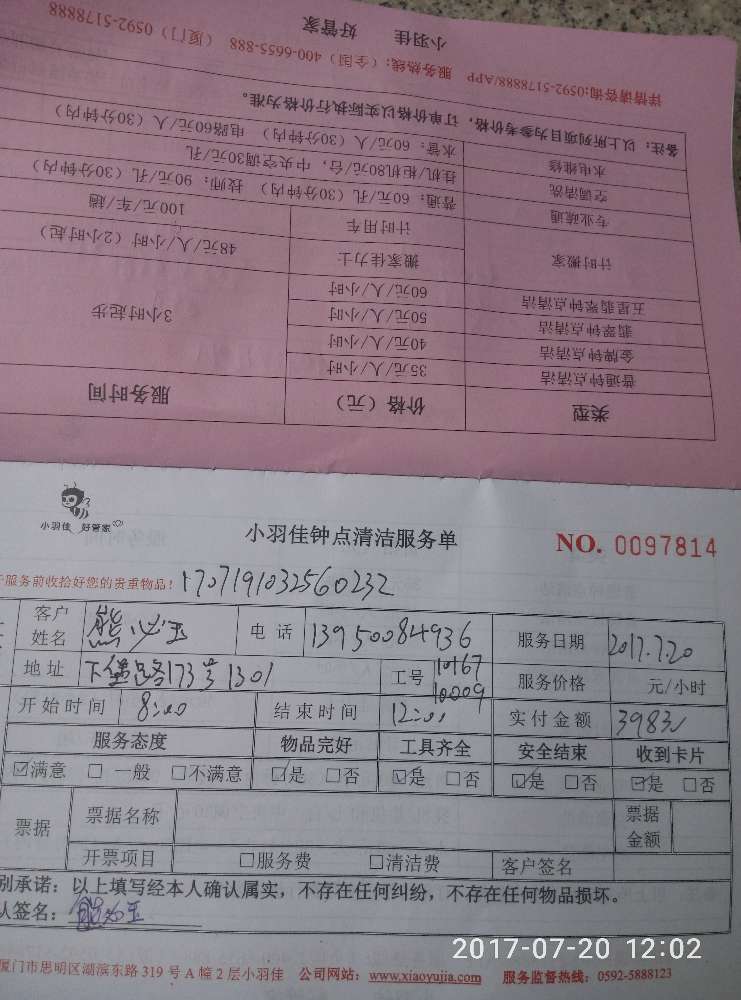 小羽佳 好管家
详情请咨询:0592-5178888/APP 服务热线：(全国) 400-6655-888 (厦门) 0592-5178888
备注：以上所列项目为参考价格，订单价格以实际执行价格为准。
水电维修 水管：60元/人 (30分钟内) 电路60元/人 (30分钟内)
空调清洗 挂机/柜机80元/台，中央空调30元/孔
专业疏通 普通：60元/孔 (30分钟内) 技师：90元/孔 (30分钟内)
计时用车 100元/车/趟
计时搬家 搬家佳力士 48元/人/小时 (2小时起)
五星翡翠钟点清洁 60元/人/小时
翡翠钟点清洁 50元/人/小时 3小时起步
金牌钟点清洁 40元/人/小时
普通钟点清洁 35元/人/小时
类型 价格 (元) 服务时间
小羽佳 好管家
小羽佳钟点清洁服务单
NO. 0097814
服务前收拾好您的贵重物品! 1707191032560232
客户姓名 熊必玉 电话 13950084936 服务日期 2017.7.20
地址 173号1301 工号 10167 10009 服务价格 元/小时
开始时间 8:00 结束时间 12:00 实付金额
服务态度 物品完好 工具齐全 安全结束 收到卡片
☑满意 □一般 □不满意 ☑是 □否 ☑是 □否 ☑是 □否 ☑是 □否
票据 票据名称 票据金额
开票项目 □服务费 □清洁费 客户签名
别承诺：以上填写经本人确认属实，不存在任何纠纷，不存在任何物品损坏。
人签名：熊必玉
厦门市思明区湖滨东路 319 号 A 幢 2 层小羽佳 公司网站：www.xiaoyujia.com 服务监督热线：0592-5888123
2017-07-20 12:02